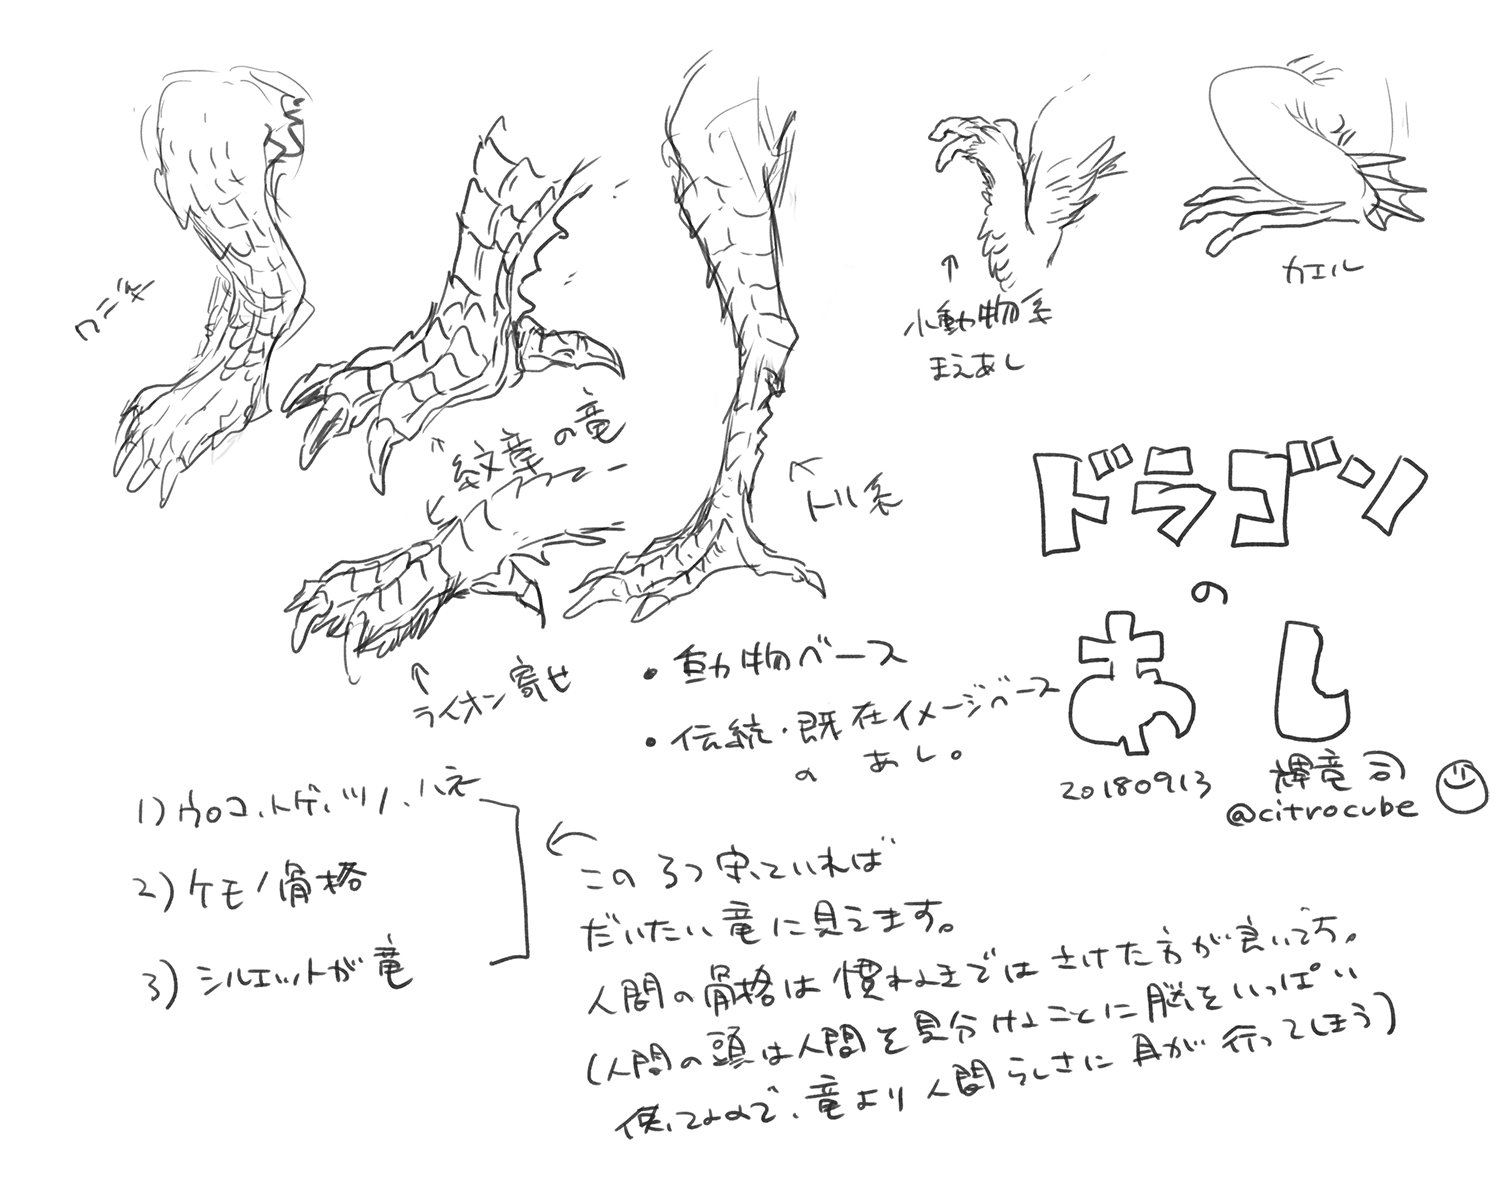 ワニ系
紋章の竜
トリ系
小動物系
まえあし
カエル
ライオン寄せ
ドラゴン
の
あし
20180913
輝竜司
@citrocube
・動物ベース
・伝統・既存イメージベース
のあし。
1)ウロコ、トゲ、ツノ、ハネ
2)ケモノ骨格
3)シルエットが竜
この3つ守っていれば
だいたい竜に見えます。
人間の骨格は慣れるまではさけた方が良いです。
(人間の頭は人間を見分けることに脳をいっぱい
使ってるので、竜より人間らしさに目が行ってしまう)